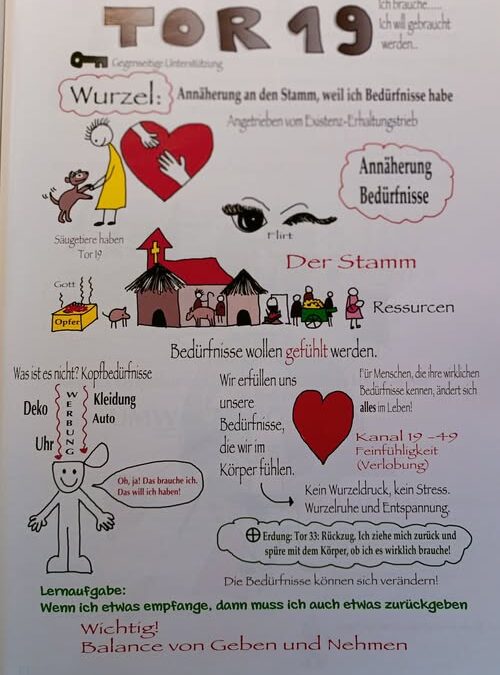 TOR 19
Ich brauche.....
Ich will gebraucht
werden..
Gegenseitige Unterstützung
Wurzel:
Annäherung an den Stamm, weil ich Bedürfnisse habe
Angetrieben vom Existenz-Erhaltungstrieb
Annäherung
Bedürfnisse
Säugetiere haben
Tor 19
Flirt
Der Stamm
Gott
Opfer
Ressurcen
Bedürfnisse wollen gefühlt werden.
Was ist es nicht? Kopfbedürfnisse
Deko
Uhr
WERBUNG
Kleidung
Auto
Oh, ja! Das brauche ich.
Das will ich haben!
Wir erfüllen uns
unsere
Bedürfnisse,
die wir im
Körper fühlen.
Für Menschen, die ihre wirklichen
Bedürfnisse kennen, ändert sich
alles im Leben!
Kanal 19 -49
Feinfühligkeit
(Verlobung)
Kein Wurzeldruck, kein Stress.
Wurzelruhe und Entspannung.
Erdung: Tor 33: Rückzug. Ich ziehe mich zurück und
spüre mit dem Körper, ob ich es wirklich brauche!
Die Bedürfnisse können sich verändern!
Lernaufgabe:
Wenn ich etwas empfange, dann muss ich auch etwas zurückgeben
Wichtig!
Balance von Geben und Nehmen